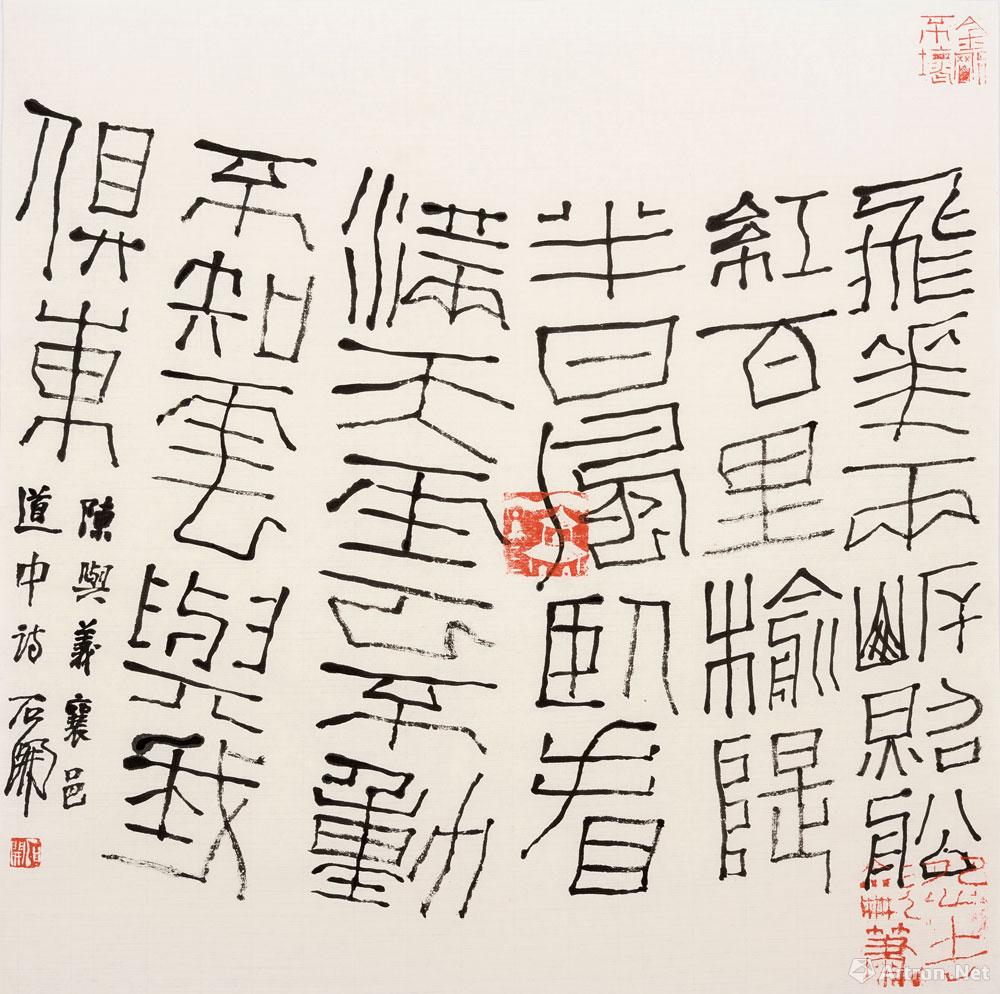 金剛不壞
飛華兩岸照舩
紅百里榆隄
半日風臥看
滿天雲不動
不知雲與我
俱東
陳與義襄邑
道中詩 石開
石開
Artron.Net